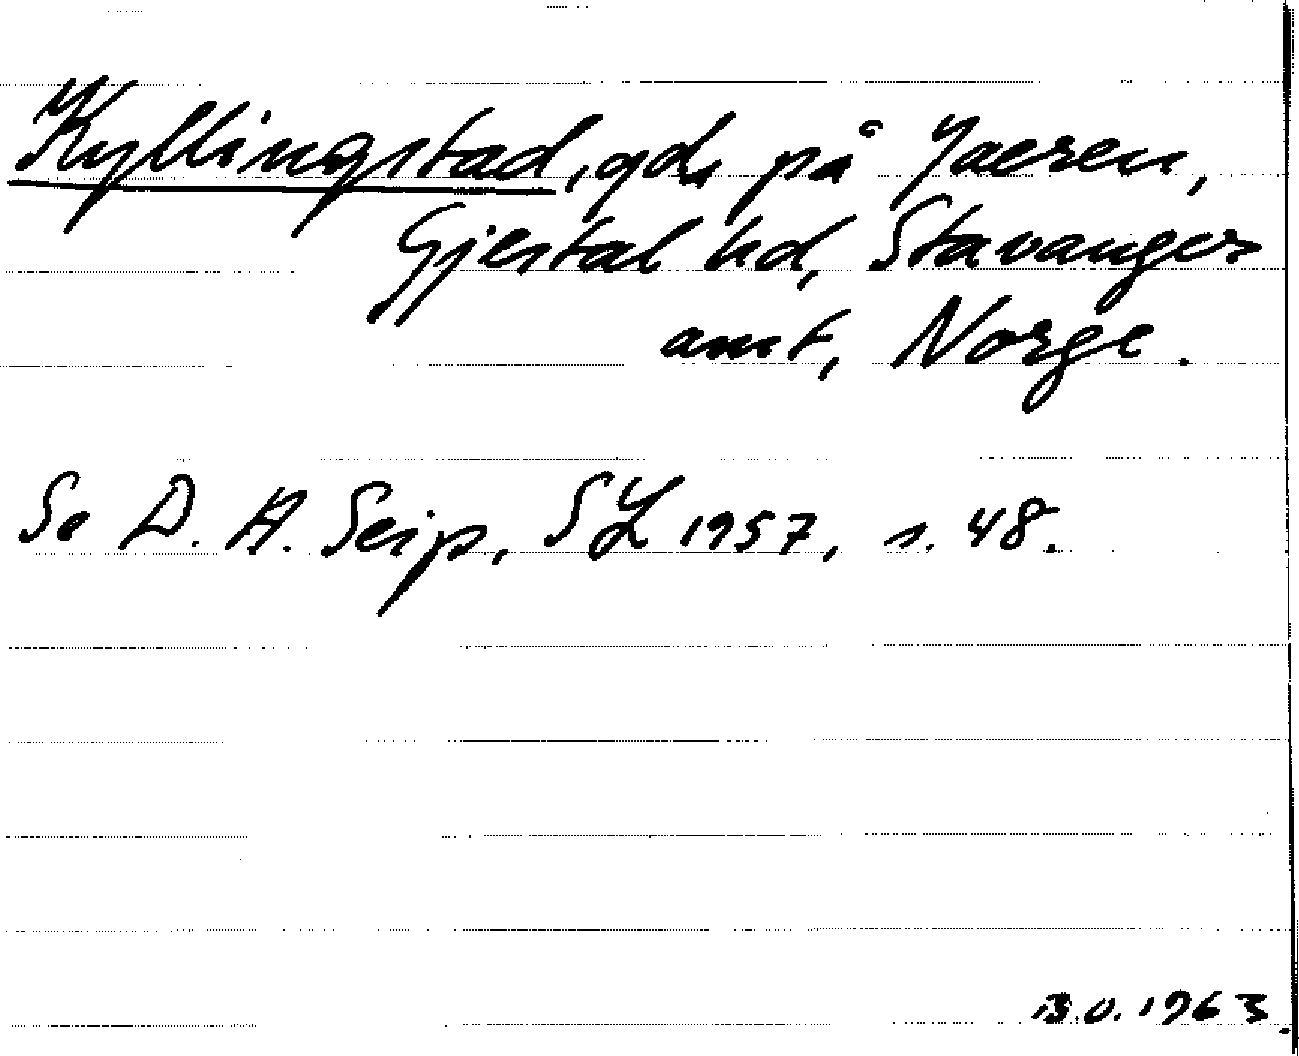 Kyllingstad, gd, på Jaeren,
Gjestal hd, Stavanger
amt, Norge.
Se D. A. Seip, SL 1957, s. 48.
B.U. 1963.